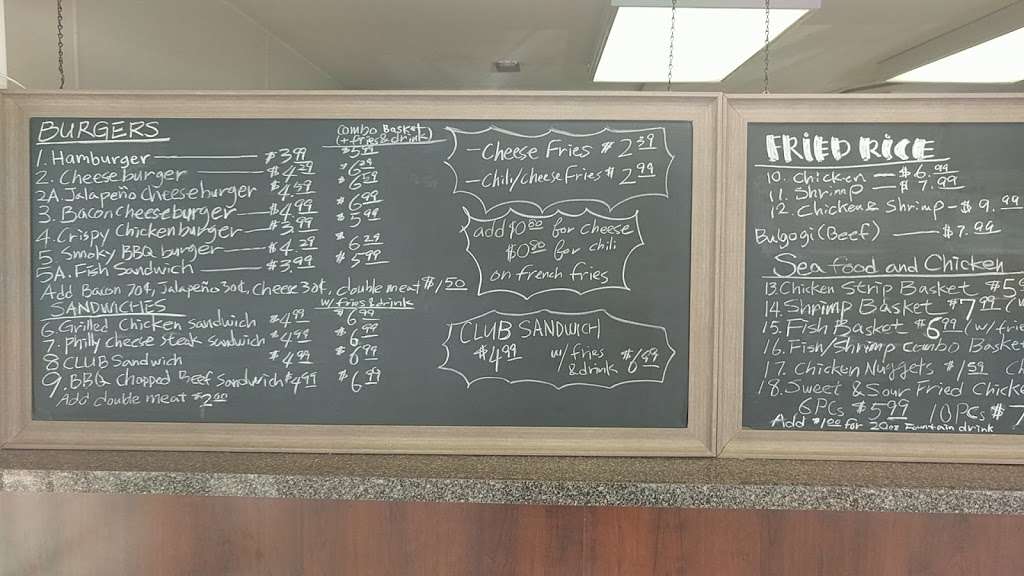 BURGERS
Combo Basket
(+fries & drink)
1. Hamburger $3.99 $5.99
2. Cheeseburger $4.39 $6.29
2A. Jalapeño cheeseburger $4.59 $6.59
3. Bacon cheeseburger $4.99 $6.99
4. Crispy Chickenburger $3.99 $5.99
5. Smoky BBQ burger $4.29 $6.29
5A. Fish Sandwich $3.99 $5.99
Add Bacon 70¢, Jalapeño 30¢, Cheese 30¢, double meat $1.50
SANDWICHES w/fries & drink
6. Grilled Chicken sandwich $4.99 $6.99
7. Philly Cheese steak sandwich $4.99 $6.99
8 CLUB Sandwich $4.99 $6.99
9. BBQ Chopped Beef Sandwich $4.99 $6.99
Add double meat $2.00
- Cheese Fries $2.39
- Chili/cheese Fries $2.99
add for cheese
for chili
on french fries
CLUB SANDWICH
$4.99 w/ fries & drink $6.99
FRIED RICE
10. Chicken — $6.99
11. Shrimp — $7.99
12. Chicken & Shrimp - $9.99
Bulgogi (Beef) — $7.99
Sea food and Chicken
13. Chicken Strip Basket $5
14. Shrimp Basket $7.99 (w
15. Fish Basket $6.99 (w/frie
16. Fish/Shrimp combo Baske
17. Chicken Nuggets $1.59
18. Sweet & Sour Fried Chick
6 PCs $5.99 10 PCs $7
Add $1.00 for 20oz Fountain drink